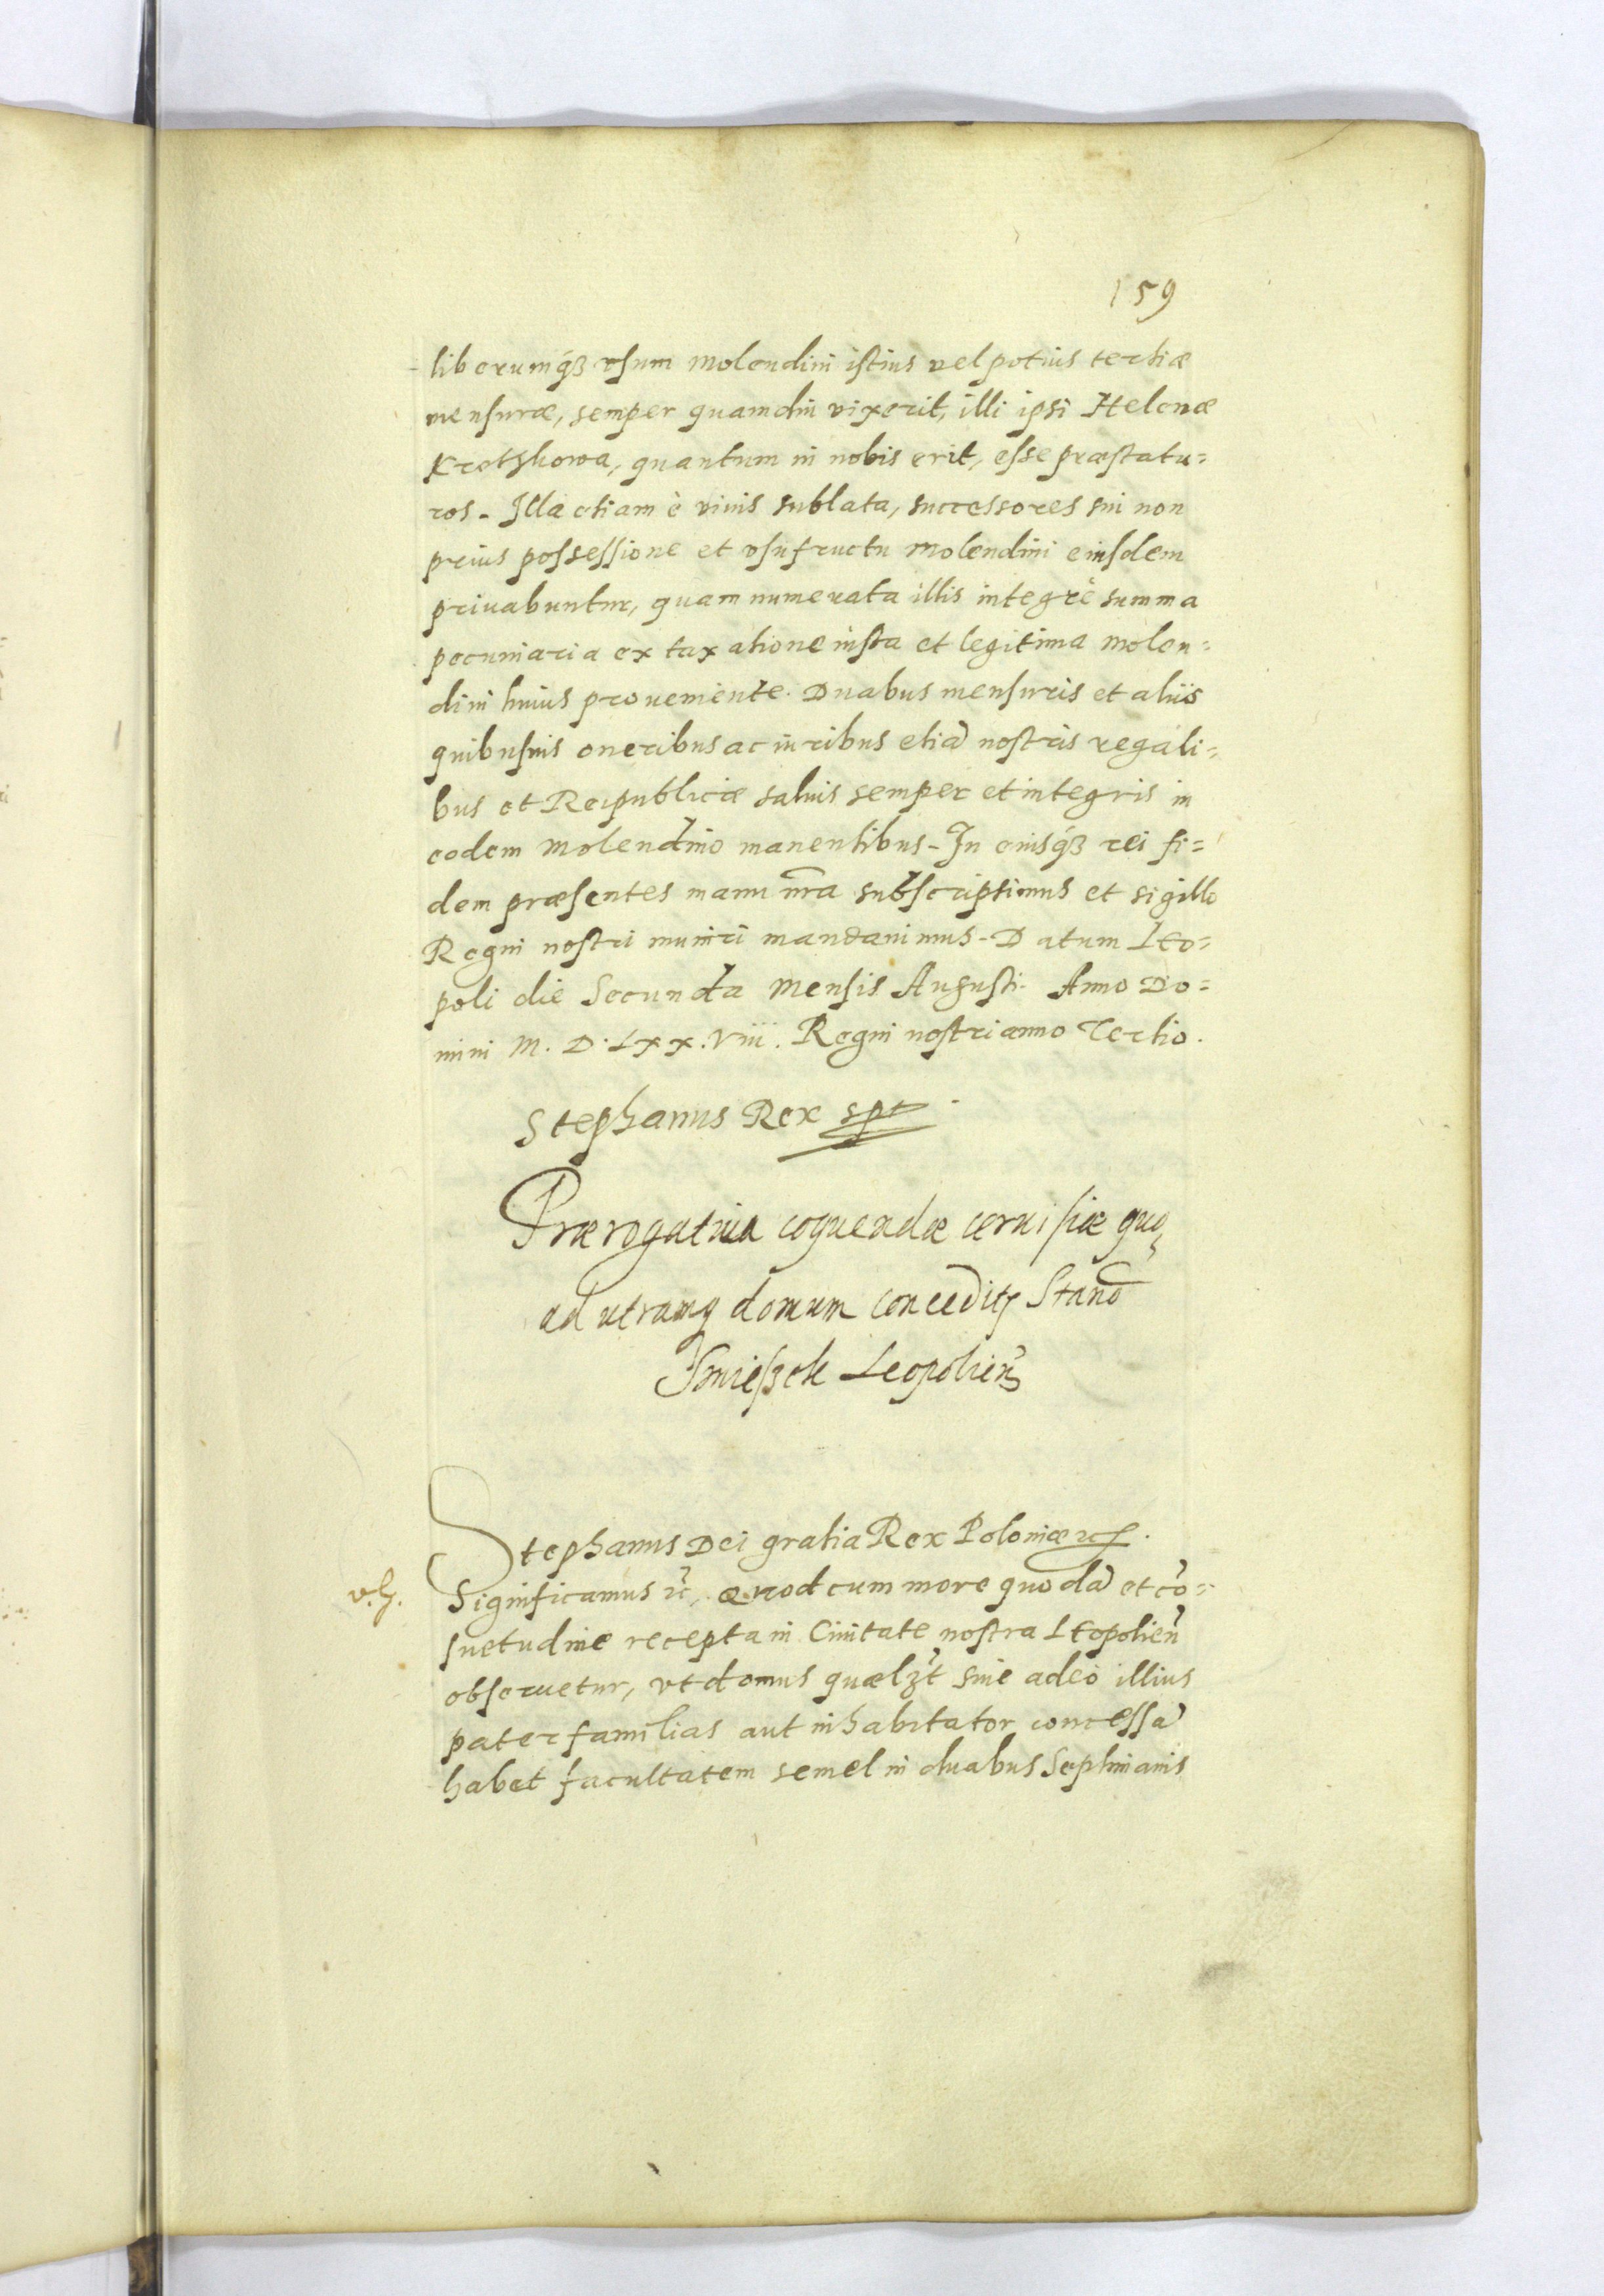 159
liberumq́ꝫ vsum Molendini istius vel potius tertiæ
mensuræ, semper quamdiu vixerit, illi ipsi Helenæ
quantum in nobis erit, esse præstatu=
ros - Illa etiam è viuis sublata, successores sui non
prius possessione et vsufructu Molendini eiusdem
priuabuntur, quam numerata illis integrè summa
pecuniaria ex taxatione iusta et legitima Molen=
dini huius proueniente. Duabus mensuris et aliis
quibusuis oneribus ac iuribus etiã nostris regali=
bus et Reipublicæ saluis semper et integris in
eodem Molendino manentibus - In cuiusq́ꝫ rei fi=
dem præsentes manu nr̃a subscripsimus et sigillo
Regni nostri muniri mandauimus - Datum Leo=
poli die Secunda Mensis Augusti. Anno Do=
mini M. D. LXX. Viii. Regni nostri anno Tertio.
Stephanus Rex spt
Prærogatiua coquendæ ceruisiæ quo
ad utramq domum conceditr Stano
Leopolien̄
Stephanus Dei gratia Rex Poloniæ ꝛc.
v. g.
Significamus ꝛc, Quod cum more quodã et cõ=
suetudine recepta in Ciuitate nostra Leopolien̄
obseruetur, vt domus quælꝫt siue adeò illius
paterfamilias aut inhabitator concessã
habet facultatem semel in duabus Septimanis